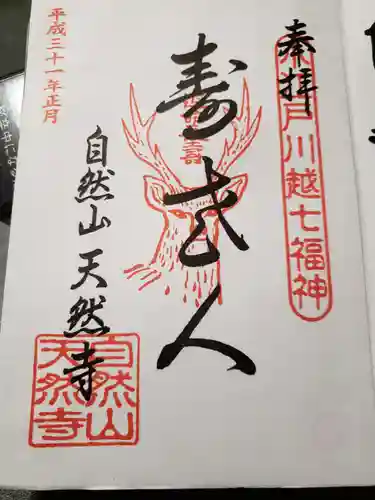 奉拝
戸川越七福神
壽老人
自然山 天然寺
平成三十一年正月
自然山
天然寺